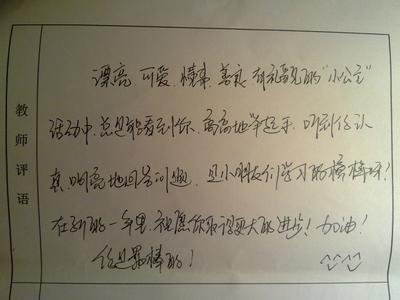 教师评语
漂亮、可爱、懂事、善良、有礼貌的“小公主”
活动中,总是能看到你,高高地举起手,听到你认
真,响亮地回答问题,是小朋友们学习的榜样呀!
在新的一年里,祝愿你取得更大的进步!加油!
你是最棒的!